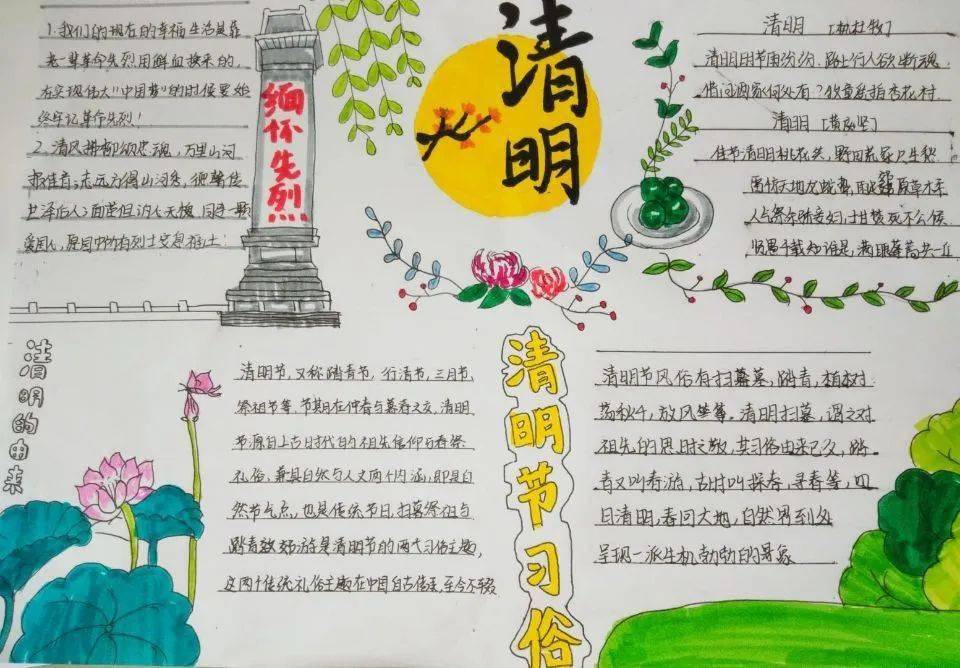 1.我们的现在的幸福生活是靠
老一辈革命先烈用鲜血换来的,
在实现伟大"中国梦"的时候要始
终牢记革命先烈!
2.清风 忠魂,万里山河
佳音;志远方得山河秀,
泽后人;
爱国心,愿国中所有烈士安息
缅怀先烈
清明
清明 [杜牧]
清明时节雨纷纷 路上行人欲断魂
借问酒家何处有?牧童 指杏花村
清明 [黄庭坚]
佳节清明桃 笑,野田荒冢只生愁
雷惊天地龙蛇蛰,雨足 原草木柔
人乞祭余骄妾妇,士甘焚死不公侯
贤愚千载知谁是,满眼蓬蒿共一丘
清明的由来
清明节,又称踏青节,行清节,三月节,
祭祖节等,节期在仲春与暮春之交,清明
节源自上古时代的祖先信仰与春祭
礼俗,兼具自然与人文两个内涵,即是自
然节气点,也是传统节日,扫墓祭祖与
踏青 郊游是清明节的两 习俗主题,
这两个传统礼俗主题在中国自古传承,至今不辍
清明节习俗
清明节风俗有扫墓,踏青,植树
荡秋千,放风筝等。清明扫墓,谓之对
祖先的思时之敬,其习俗由来已久,踏
青又叫春游,古时叫探春,寻春等,四
日清明,春回大地,自然界到处
呈现一派生机勃勃的景象